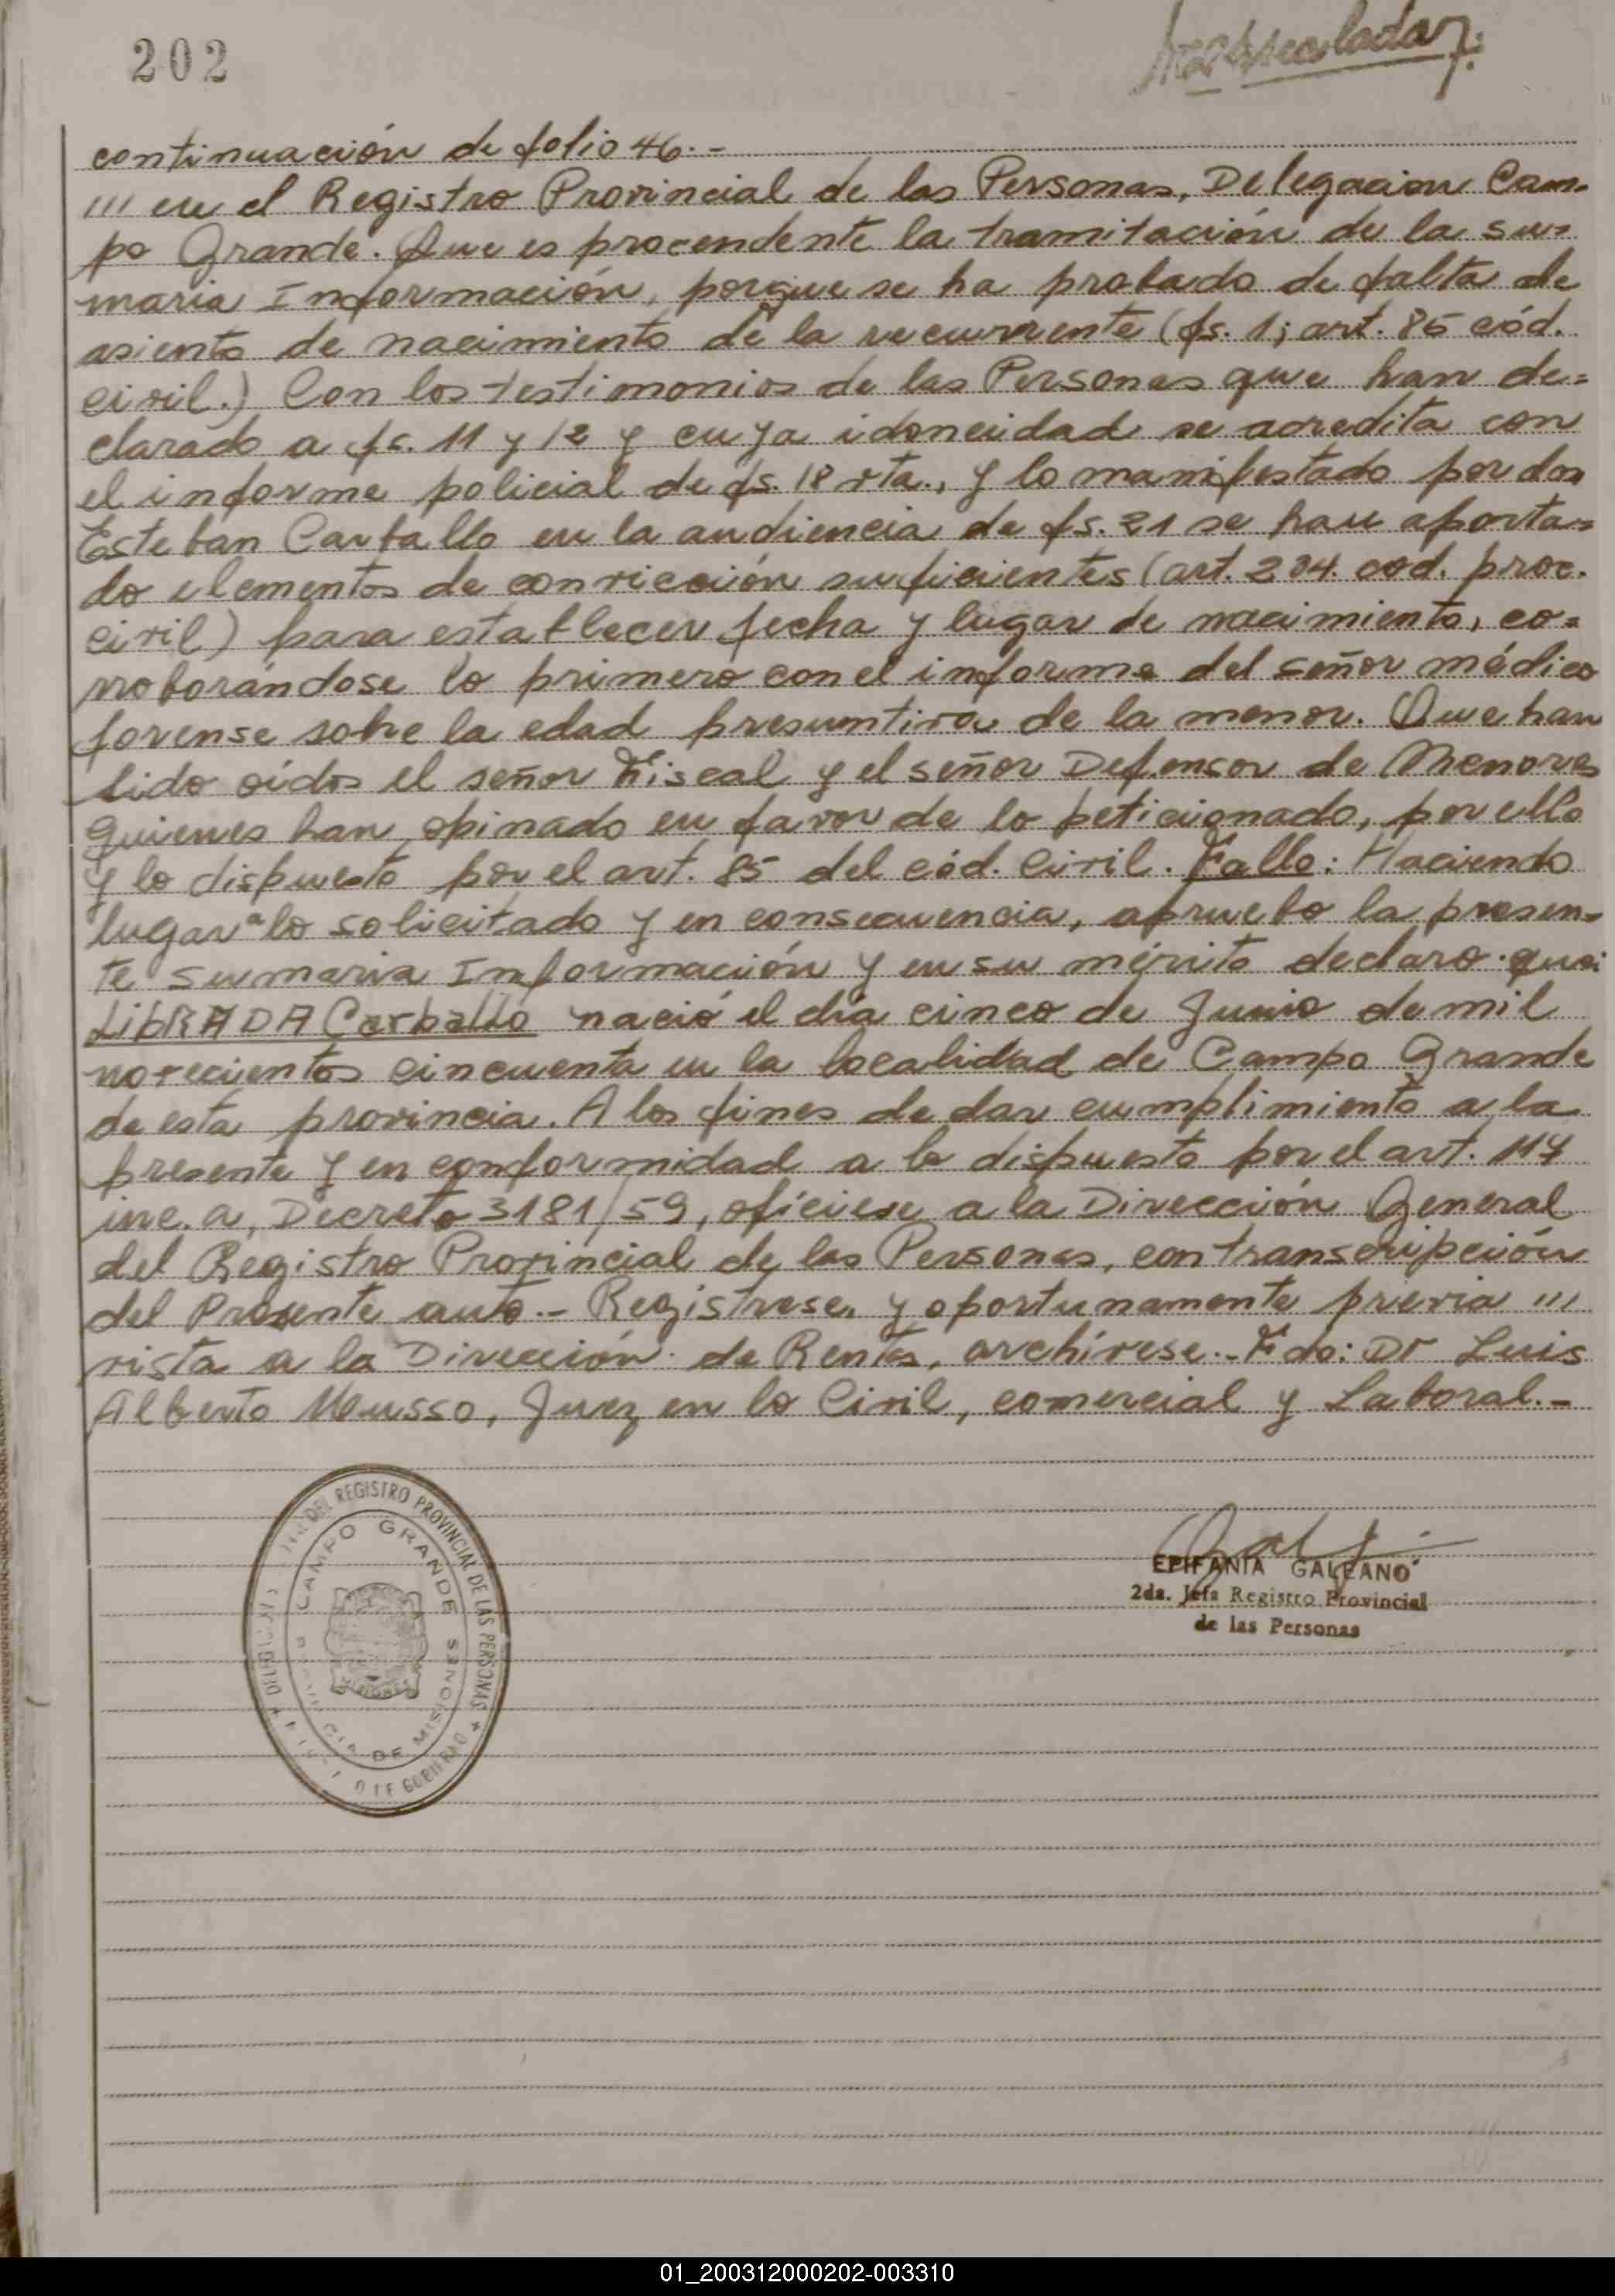 202
continuación de folio 46.-
/// en el Registro Provincial de las Personas, Delegacion Cam-
po Grande. Que es procendente la tramitación de la su=
maria Información, porque se ha probado de falta de
asiento de nacimiento de la recurrente (fs. 1; art. 85 cód.
civil.) Con los testimonios de las Personas que han de=
clarado a fs. 11 y 12 y cuya idoneidad se acredita con
el informe policial de fs. 18 vta., y lo manifestado por don
Esteban Carballo en la audiencia de fs. 21 se han aporta=
do elementos de convicción suficientes (art. 204. cod. proc.
civil) para establecer fecha y lugar de nacimiento, co=
rroborándose lo primero con el informe del señor médico
forense sobre la edad presuntiva de la menor. Que han
sido oídos el señor Fiscal y el señor Defensor de Menores
quienes han opinado en favor de lo peticionado, por ello
y lo dispuesto por el art. 85 del cód. Civil. Fallo: Haciendo
lugar a lo solicitado y en consecuencia, apruebo la presen=
te sumaria Información y en su mérito declaro que:
LibRADA Carballo nació el día cinco de Junio de mil
novecientos cincuenta en la localidad de Campo Grande
de esta provincia. A los fines de dar cumplimiento a la
presente y en conformidad a lo dispuesto por el art. 117
inc. a, Decreto 3181/59, ofíciese a la Dirección General
del Registro Provincial de las Personas, con transcripción
del Presente auto.- Registrese, y oportunamente previa ///
vista a la Dirección de Rentas, archívese.- Fdo: Dr Luis
Alberto Musso, Juez en lo Civil, comercial y Laboral.-
DEL REGISTRO PROVINCIAL DE LAS PERSONAS
CAMPO GRANDE
MISIONES
PROVINCIA DE MISIONES
EPIFANIA GALEANO
2da. Jefa Registro Provincial
de las Personas
01_200312000202-003310